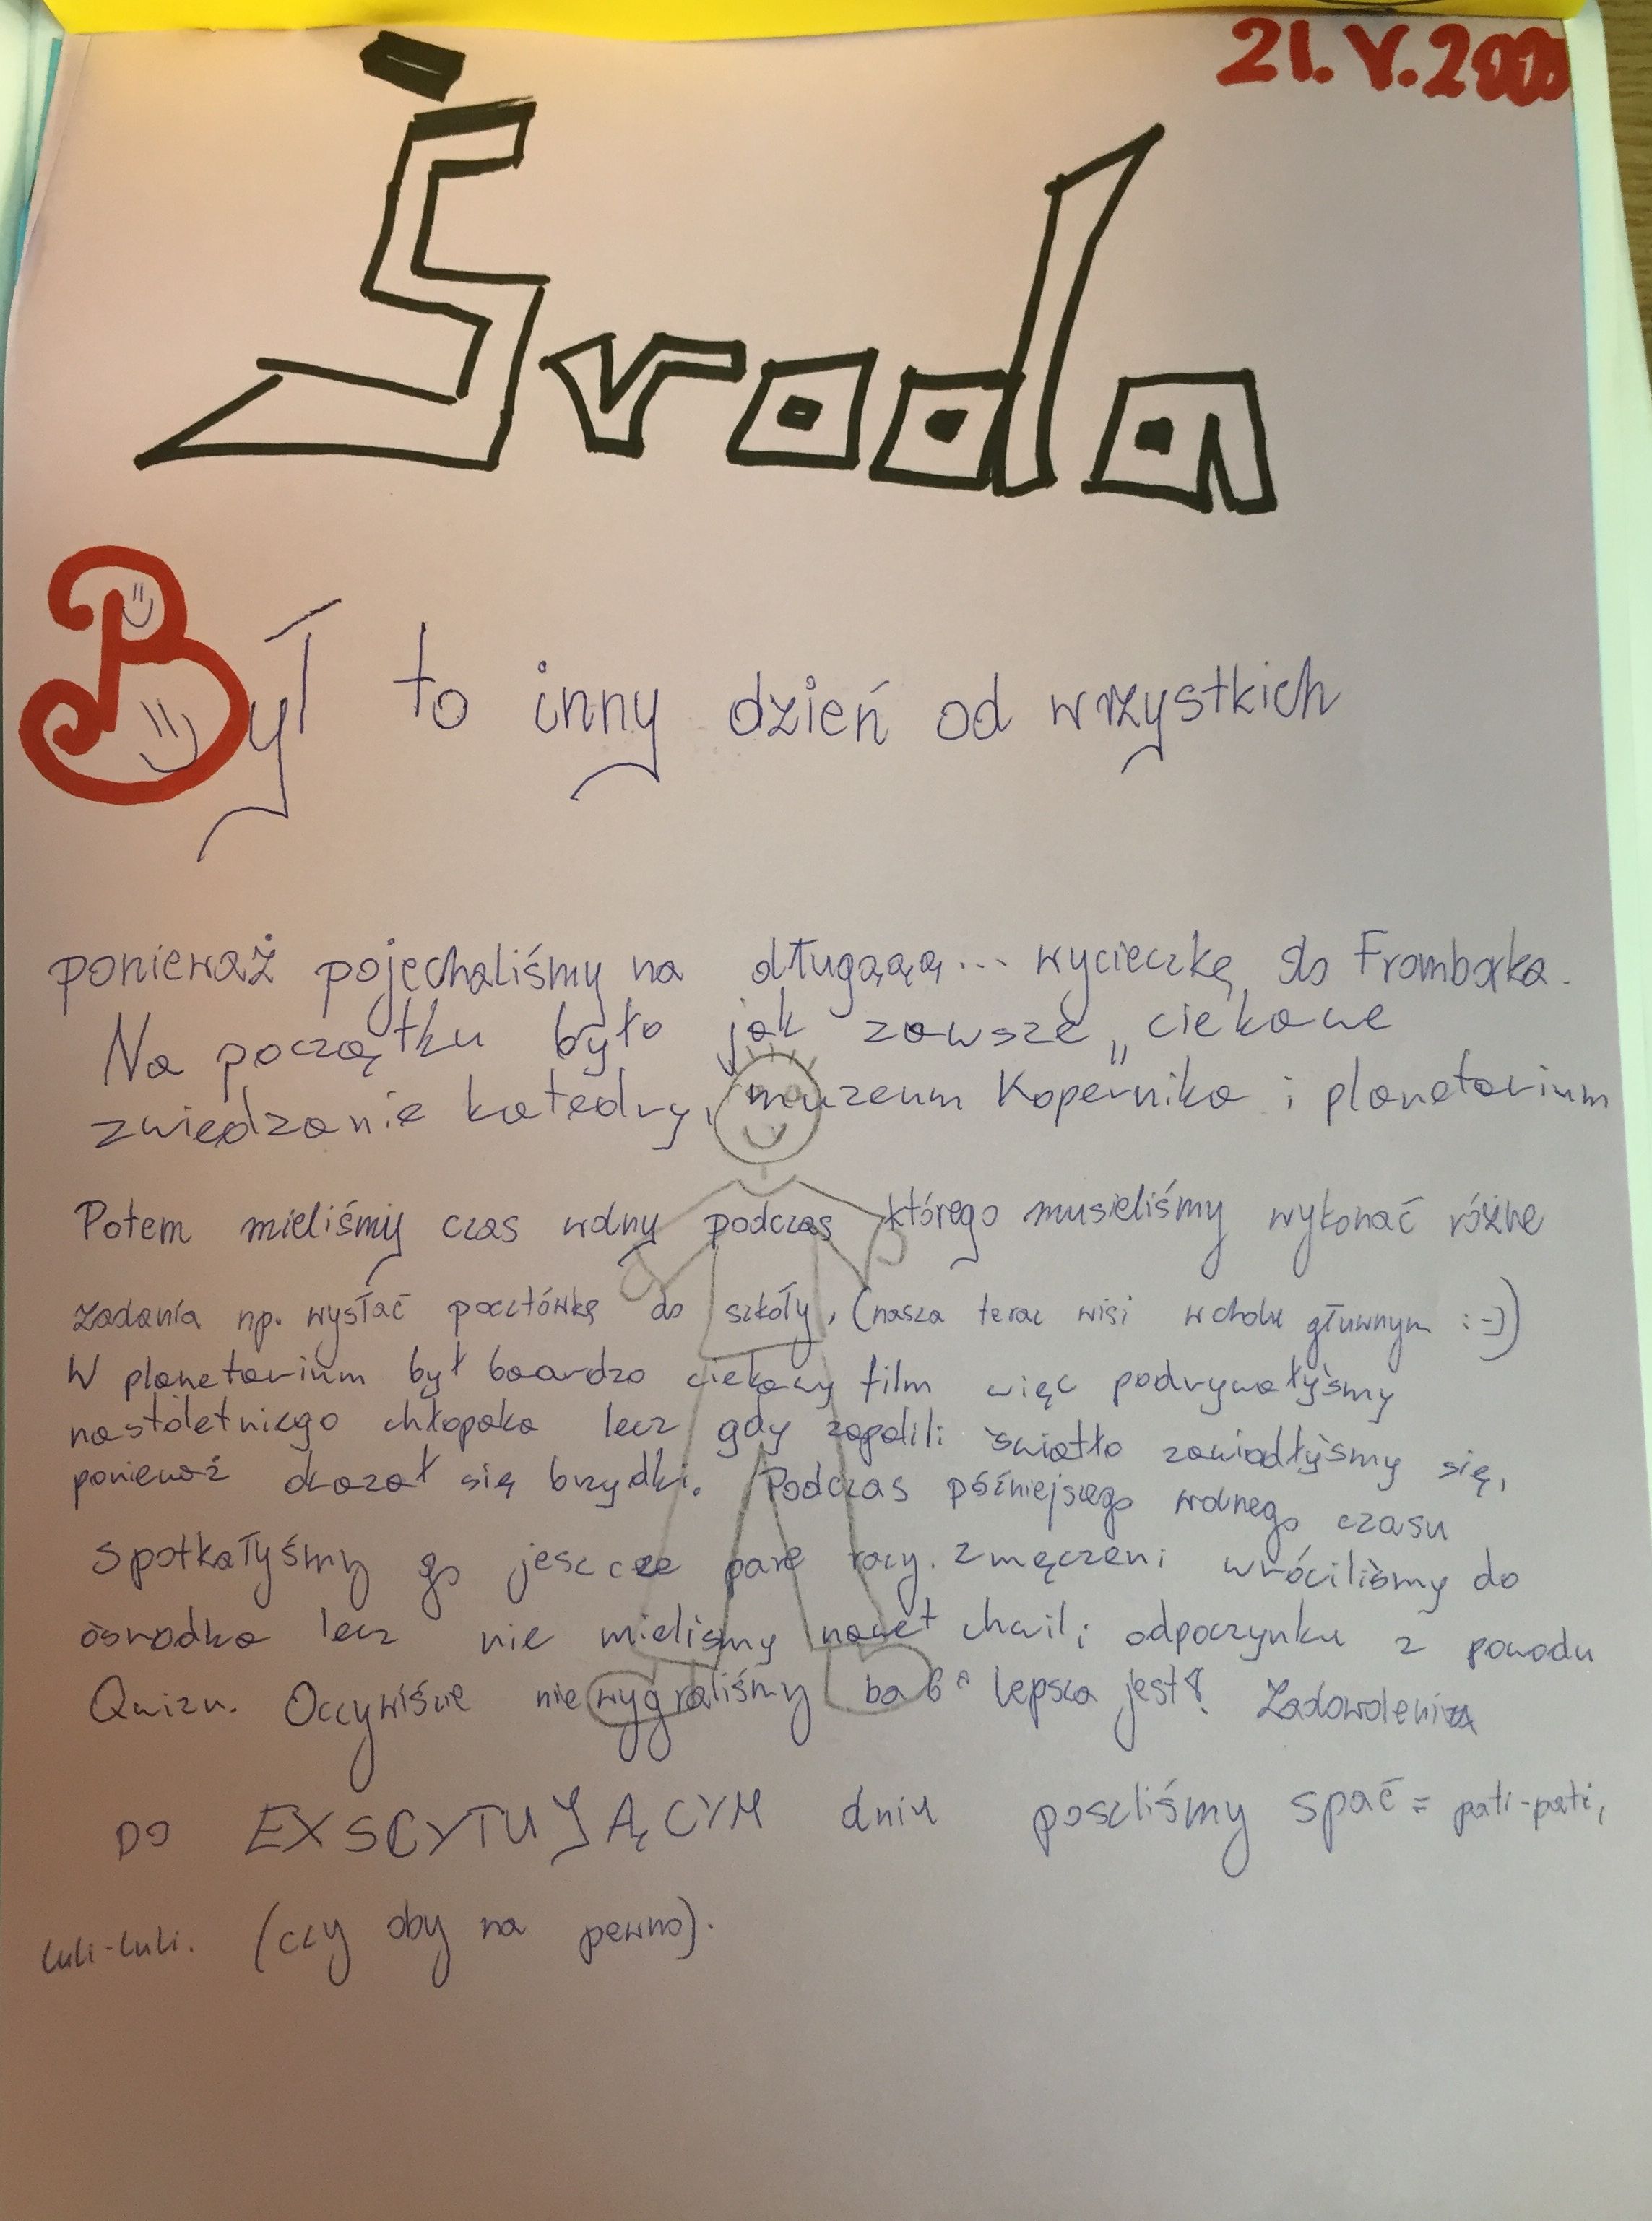 21.V.200
Środa
Był to inny dzień od wrzystkich
ponieważ pojechaliśmy na długąąą... wycieczkę do Fromborka.
Na początku było jak zawsze „ciekawe
zwiedzanie katedry, muzeum Kopernika i planetarium
Potem mieliśmy czas wolny podczas którego musieliśmy wykonać różne
zadania np. wysłać pocztówkę do szkoły, (nasza teraz wisi w cholu głuwnym :-))
W planetarium był baardzo ciekawy film więc podrywałyśmy
nastoletniego chłopaka lecz gdy zapalili światło zawiodłyśmy się,
ponieważ okazał się brzydki. Podczas późniejszego wolnego czasu
spotkałyśmy go jeszcze parę razy. Zmęczeni wróciliśmy do
ośrodka lecz nie mieliśmy nawet chwili odpoczynku z powodu
Quizu. Oczywiście nie wygraliśmy bo 6a lepsza jest! Zadowoleni
po EXSCYTUJĄCYM dniu poszliśmy spać = pati-pati,
luli-luli. (czy aby na pewno).